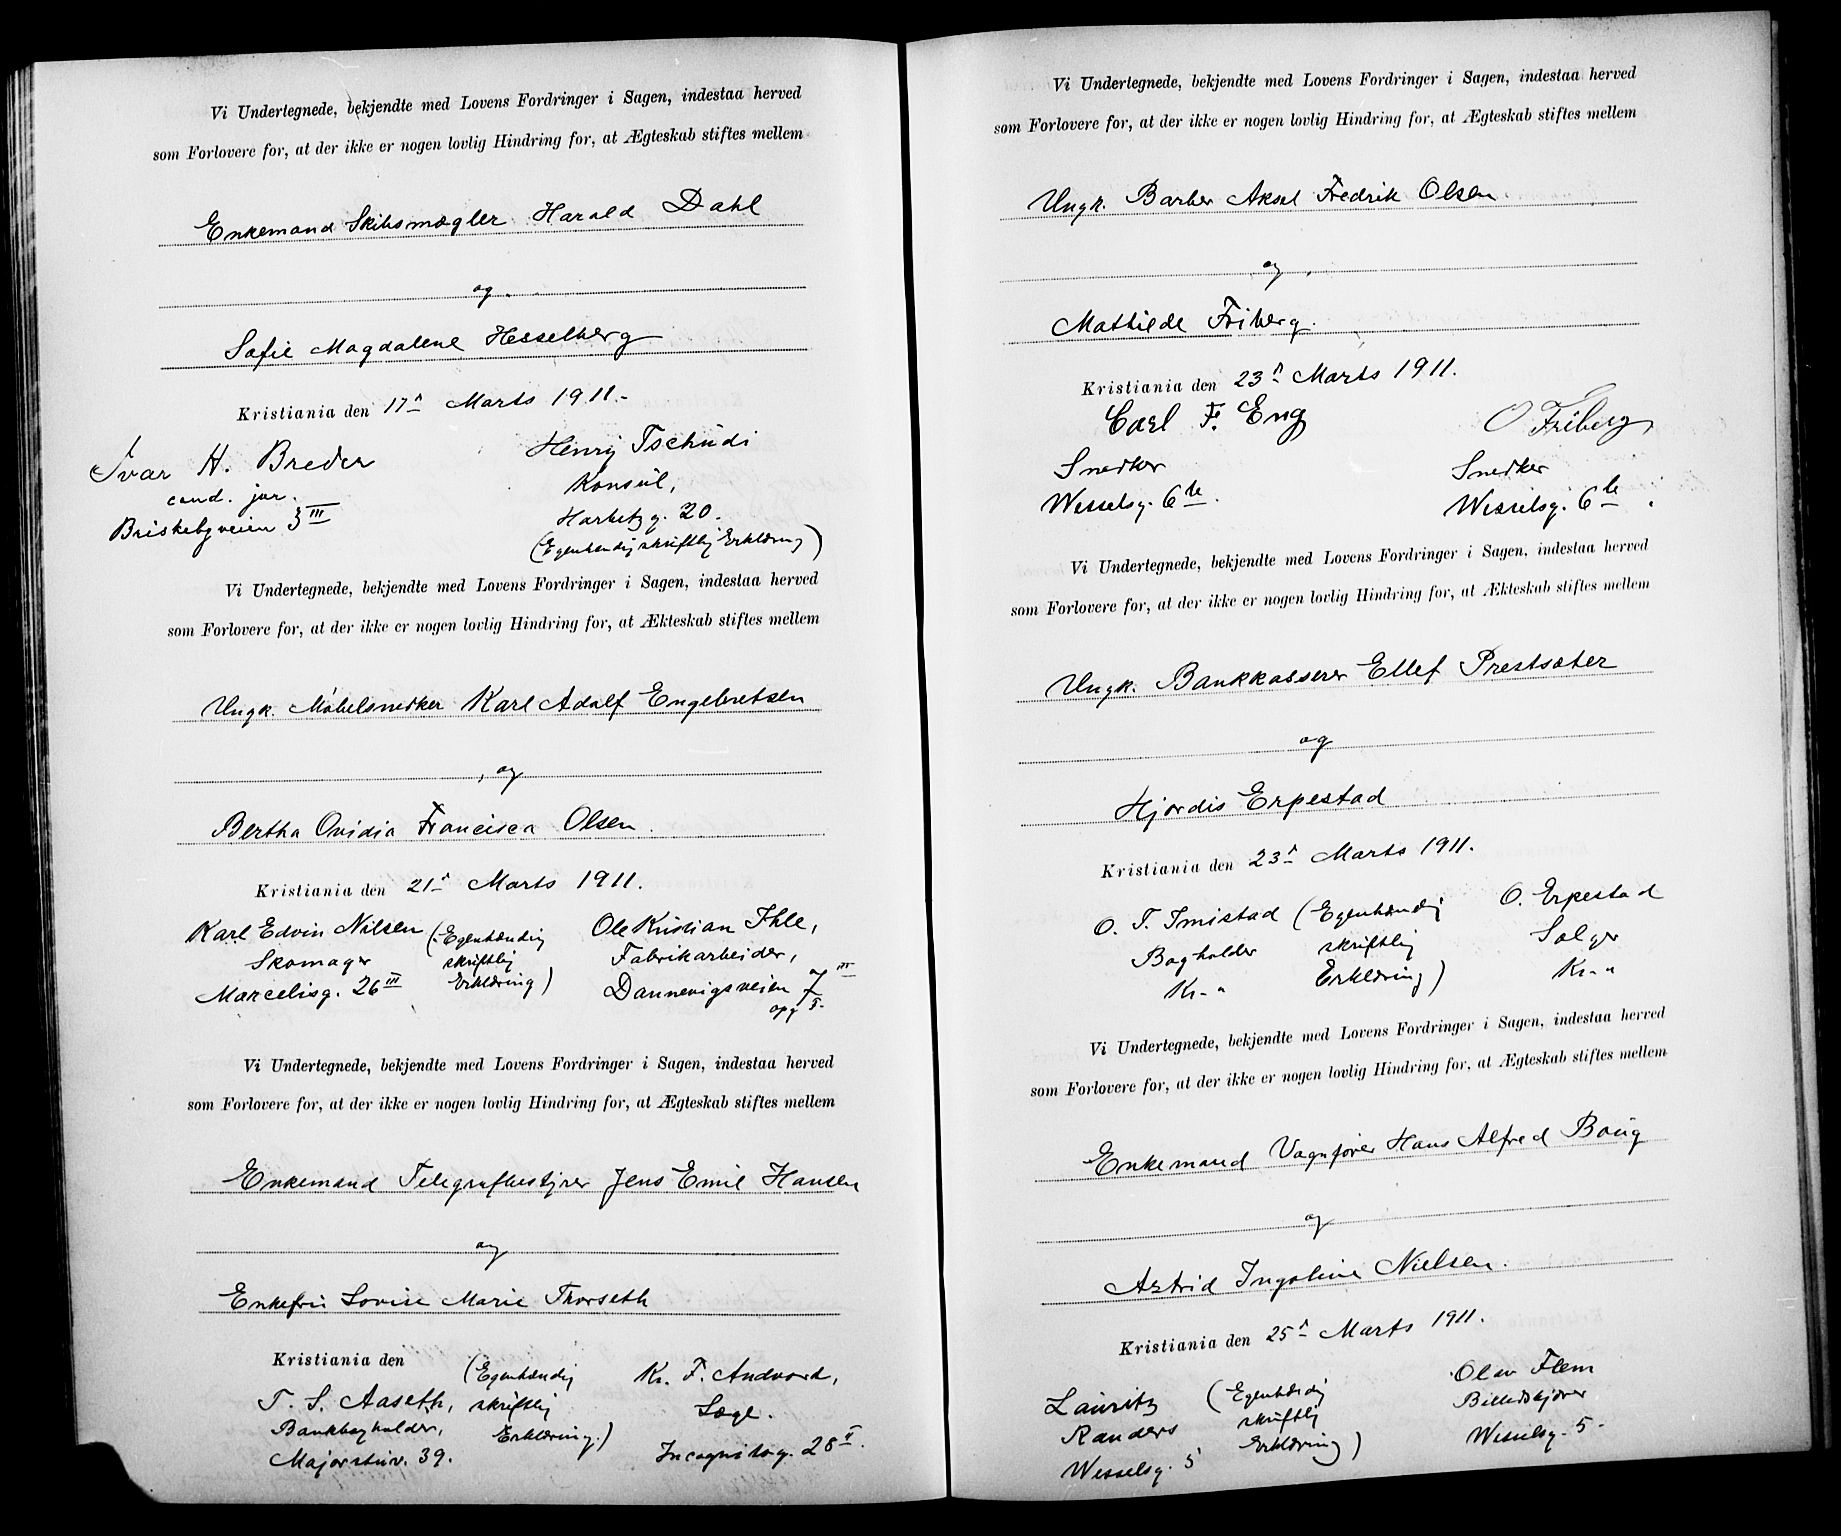 Vi Undertegnede, bekjendte med Lovens Fordringer i Sagen, indestaa herved
som Forlovere for, at der ikke er nogen lovlig Hindring for, at Ægteskab stiftes mellem
Enkemand Skibsmægler Harald Dahl
og
Sofie Magdalene Hesselberg
Kristiania den 17de Marts 1911.-
Ivar H. Breder
cand. jur.
Briskebyveien 3 III
Henry Tschudi
Konsul,
Harbitzg. 20.
(Egenhendig skriftlig Erklæring)
Vi Undertegnede, bekjendte med Lovens Fordringer i Sagen, indestaa herved
som Forlovere for, at der ikke er nogen lovlig Hindring for, at Ækteskab stiftes mellem
Ungk. Møbelsnedker Karl Adolf Engebretsen
og
Bertha Ovidia Francisca Olsen.
Kristiania den 21de Marts 1911.
Karl Edvin Nilsen
Skomager
Marcelisg. 26 III
(Egenhændig
skriftlig
Erklæring)
Ole Kristian Ihle,
Fabrikarbeider,
Dannevigsveien 7 III
opg I.
Vi Undertegnede, bekjendte med Lovens Fordringer i Sagen, indestaa herved
som Forlovere for, at der ikke er nogen lovlig Hindring for, at Ægteskab stiftes mellem
Enkemand Telegrafbestyrer Jens Emil Hansen
og
Enkefru Lovise Marie Thorseth
Kristiania den
T. S. Aaseth,
Bankbogholder,
Majorstuv. 39.
(Egenhændig
skriftlig
Erklæring.)
Kr. F. Andvord,
Læge.
Incognitog. 28 II.
Vi Undertegnede, bekjendte med Lovens Fordringer i Sagen, indestaa herved
som Forlovere for, at der ikke er nogen lovlig Hindring for, at Ægteskab stiftes mellem
Ungk. Barber Aksel Fredrik Olsen.
og
Mathilde Friberg.
Kristiania den 23de Marts 1911.
Carl F. Eng
Snedker
Wesselsg. 6 b.
O Friberg
Snedker
Wesselsg. 6 b.
Vi Undertegnede, bekjendte med Lovens Fordringer i Sagen, indestaa herved
som Forlovere for, at der ikke er nogen lovlig Hindring for, at Ækteskab stiftes mellem
Ungk. Bankkasserer Ellef Prestsæter
og
Hjørdis Erpestad
Kristiania den 23de Marts 1911.
O. T. Imistad
Bogholder
Kr.-a
(Egenhændig
skriftlig
Erklæring)
O. Erpestad
Sælger
Kr.-a
Vi Undertegnede, bekjendte med Lovens Fordringer i Sagen, indestaa herved
som Forlovere for, at der ikke er nogen lovlig Hindring for, at Ægteskab stiftes mellem
Enkemand Vognfører Hans Alfred Boug
og
Astrid Ingoline Nielsen.
Kristiania den 25de Marts 1911.
Lauritz
Randers
Wesselsg. 5
(Egenhændig
skriftlig
Erklæring)
Olav Flem
Billedskjærer
Wesselsg. 5.